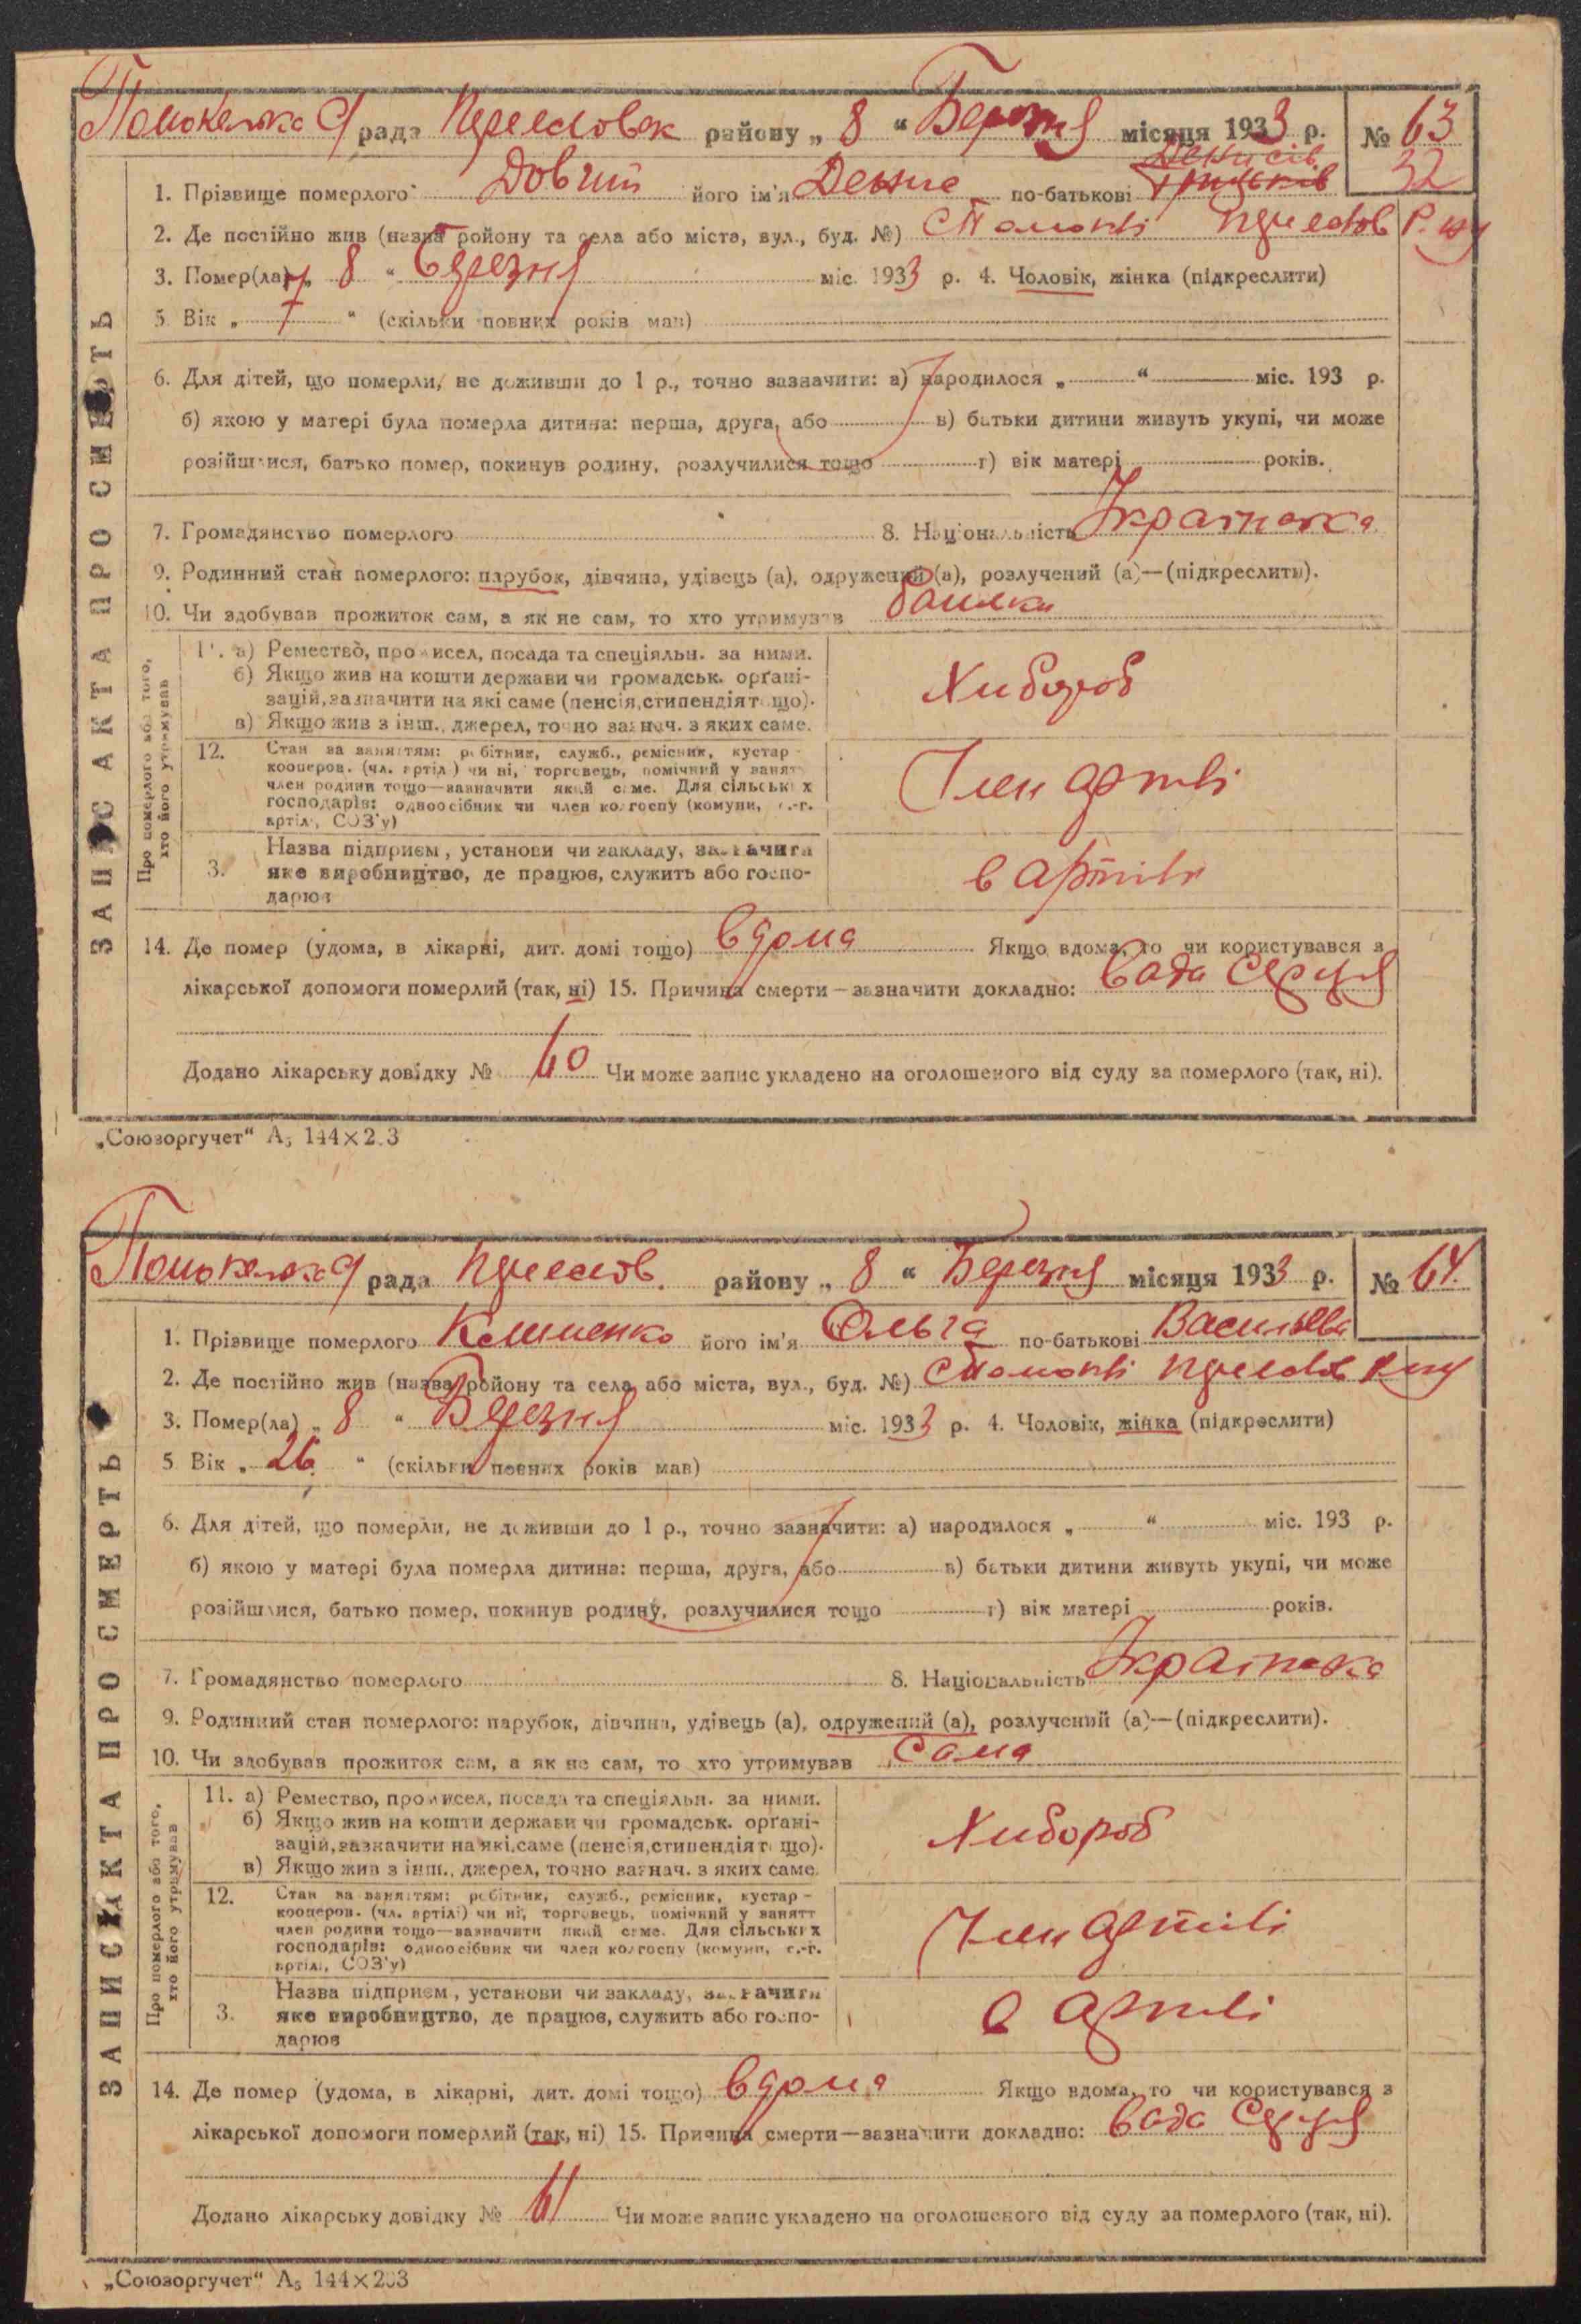 Помокельска рада Переяславськ району „ 8 “ Березня місяця 1933 р. № 63
32
Денисів
1. Прізвище померлого Довгий його ім'я Дениc по-батькові Грицьків
2. Де постійно жив (назва ройону та села або міста, вул., буд. №) с Помоклі
3. Помер(ла) „ 8 “ Березня міс. 1933 р. 4. Чоловік, жінка (підкреслити)
5. Вік „ 7 “ (скільки повних років мав)
6. Для дітей, що померли, не доживши до 1 р., точно зазначити: а) народилося „ “ міс. 193 р.
б) якою у матері була померла дитина: перша, друга, або в) батьки дитини живуть укупі, чи може
розійшлися, батько помер, покинув родину, розлучилися тощо г) вік матері років.
7. Громадянство померлого 8. Національність Українська
9. Родинний стан померлого: парубок, дівчина, удівець (а), одружений (а), розлучений (а)—(підкреслити).
10. Чи здобував прожиток сам, а як не сам, то хто утримував батьки
ЗАПИС АКТА ПРО СМЕРТЬ
Про померлого або того,
хто його утримував
11. а) Ремество, промисел, посада та спеціяльн. за ними.
б) Якщо жив на кошти держави чи громадськ. орґані-
зацій, зазначити на які саме (пенсія, стипендія тощо).
в) Якщо жив з інш., джерел, точно зазнач. з яких саме.
Хлібороб
12. Стан за заняттям: робітник, служб., ремісник, кустар -
кооперов. (чл. артіл) чи ні, торговець, помічний у занят
член родини тощо—зазначити який саме. Для сільських
господарів: одноосібник чи член колгоспу (комуни, с.-г.
артіл., СОЗ'у)
Член артілі
3. Назва підприєм, установи чи закладу, зазначити
яке виробництво, де працює, служить або госпо-
дарює
в артілі
14. Де помер (удома, в лікарні, дит. домі тощо) вдома Якщо вдома, то чи користувався з
лікарської допомоги померлий (так, ні) 15. Причина смерти—зазначити докладно: вада серця
Додано лікарську довідку № 60 Чи може запис укладено на оголошеного від суду за померлого (так, ні).
„Союзоргучет“ А5 144×203
Помокельска рада Переяслов. району „ 8 “ Березня місяця 1933 р. № 64
1. Прізвище померлого його ім'я Ольга по-батькові Васильєва
2. Де постійно жив (назва ройону та села або міста, вул., буд. №) с Помоклі
3. Помер(ла) „ 8 “ Березня міс. 1933 р. 4. Чоловік, жінка (підкреслити)
5. Вік „ 26 “ (скільки повних років мав)
6. Для дітей, що померли, не доживши до 1 р., точно зазначити: а) народилося „ “ міс. 193 р.
б) якою у матері була померла дитина: перша, друга, або в) батьки дитини живуть укупі, чи може
розійшлися, батько помер, покинув родину, розлучилися тощо г) вік матері років.
7. Громадянство померлого 8. Національність Українська
9. Родинний стан померлого: парубок, дівчина, удівець (а), одружений (а), розлучений (а)—(підкреслити).
10. Чи здобував прожиток сам, а як не сам, то хто утримував Сама
ЗАПИС АКТА ПРО СМЕРТЬ
Про померлого або того,
хто його утримував
11. а) Ремество, промисел, посада та спеціяльн. за ними.
б) Якщо жив на кошти держави чи громадськ. орґані-
зацій, зазначити на які саме (пенсія, стипендія тощо).
в) Якщо жив з інш., джерел, точно зазнач. з яких саме.
Хлібороб
12. Стан за заняттям: робітник, служб., ремісник, кустар -
кооперов. (чл. артілі) чи ні, торговець, помічний у занятт
член родини тощо—зазначити який саме. Для сільських
господарів: одноосібник чи член колгоспу (комуни, с.-г.
артілі, СОЗ'у)
Член артілі
3. Назва підприєм, установи чи закладу, зазначити
яке виробництво, де працює, служить або госпо-
дарює
в артілі
14. Де помер (удома, в лікарні, дит. домі тощо) вдома Якщо вдома, то чи користувався з
лікарської допомоги померлий (так, ні) 15. Причина смерти—зазначити докладно: вада серця
Додано лікарську довідку № 61 Чи може запис укладено на оголошеного від суду за померлого (так, ні).
„Союзоргучет“ А5 144×203